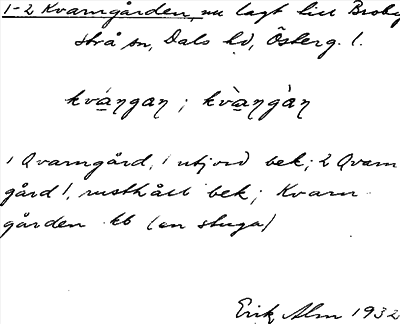 1-2 Kvarngården, nu lagt till Broby
strå sn, Dals hd, Österg. l.
kvángan ; kvàngàn
1 Qvarngård, 1 utjord bek; 2 Qvarn
gård 1, rusthåll bek; Kvarn
gården kb (en stuga)
Erik Alm 1932